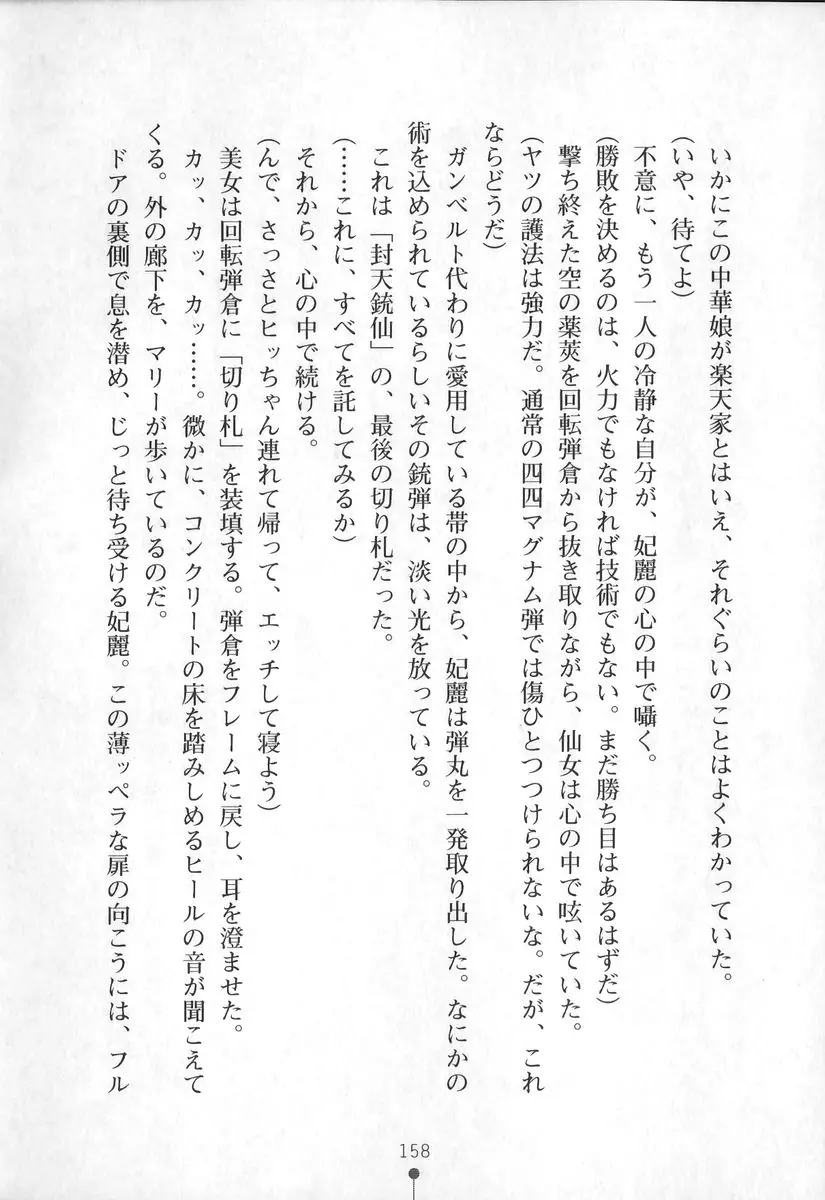 いかにこの中華娘が楽天家とはいえ、それぐらいのことはよくわかっていた。
(いや、待てよ)
不意に、もう一人の冷静な自分が、妃麗の心の中で囁く。
(勝敗を決めるのは、火力でもなければ技術でもない。まだ勝ち目はあるはずだ)
撃ち終えた空の薬莢を回転弾倉から抜き取りながら、仙女は心の中で呟いていた。
(ヤツの護法は強力だ。通常の四四マグナム弾では傷ひとつつけられないな。だが、これ
ならどうだ)
ガンベルト代わりに愛用している帯の中から、妃麗は弾丸を一発取り出した。なにかの
術を込められているらしいその銃弾は、淡い光を放っている。
これは「封天銃仙」の、最後の切り札だった。
(……これに、すべてを託してみるか)
それから、心の中で続ける。
(んで、さっさとヒッちゃん連れて帰って、エッチして寝よう)
美女は回転弾倉に「切り札」を装填する。弾倉をフレームに戻し、耳を澄ませた。
カッ、カッ、カッ……。微かに、コンクリートの床を踏みしめるヒールの音が聞こえて
くる。外の廊下を、マリーが歩いているのだ。
ドアの裏側で息を潜め、じっと待ち受ける妃麗。この薄ッペラな扉の向こうには、フル
158